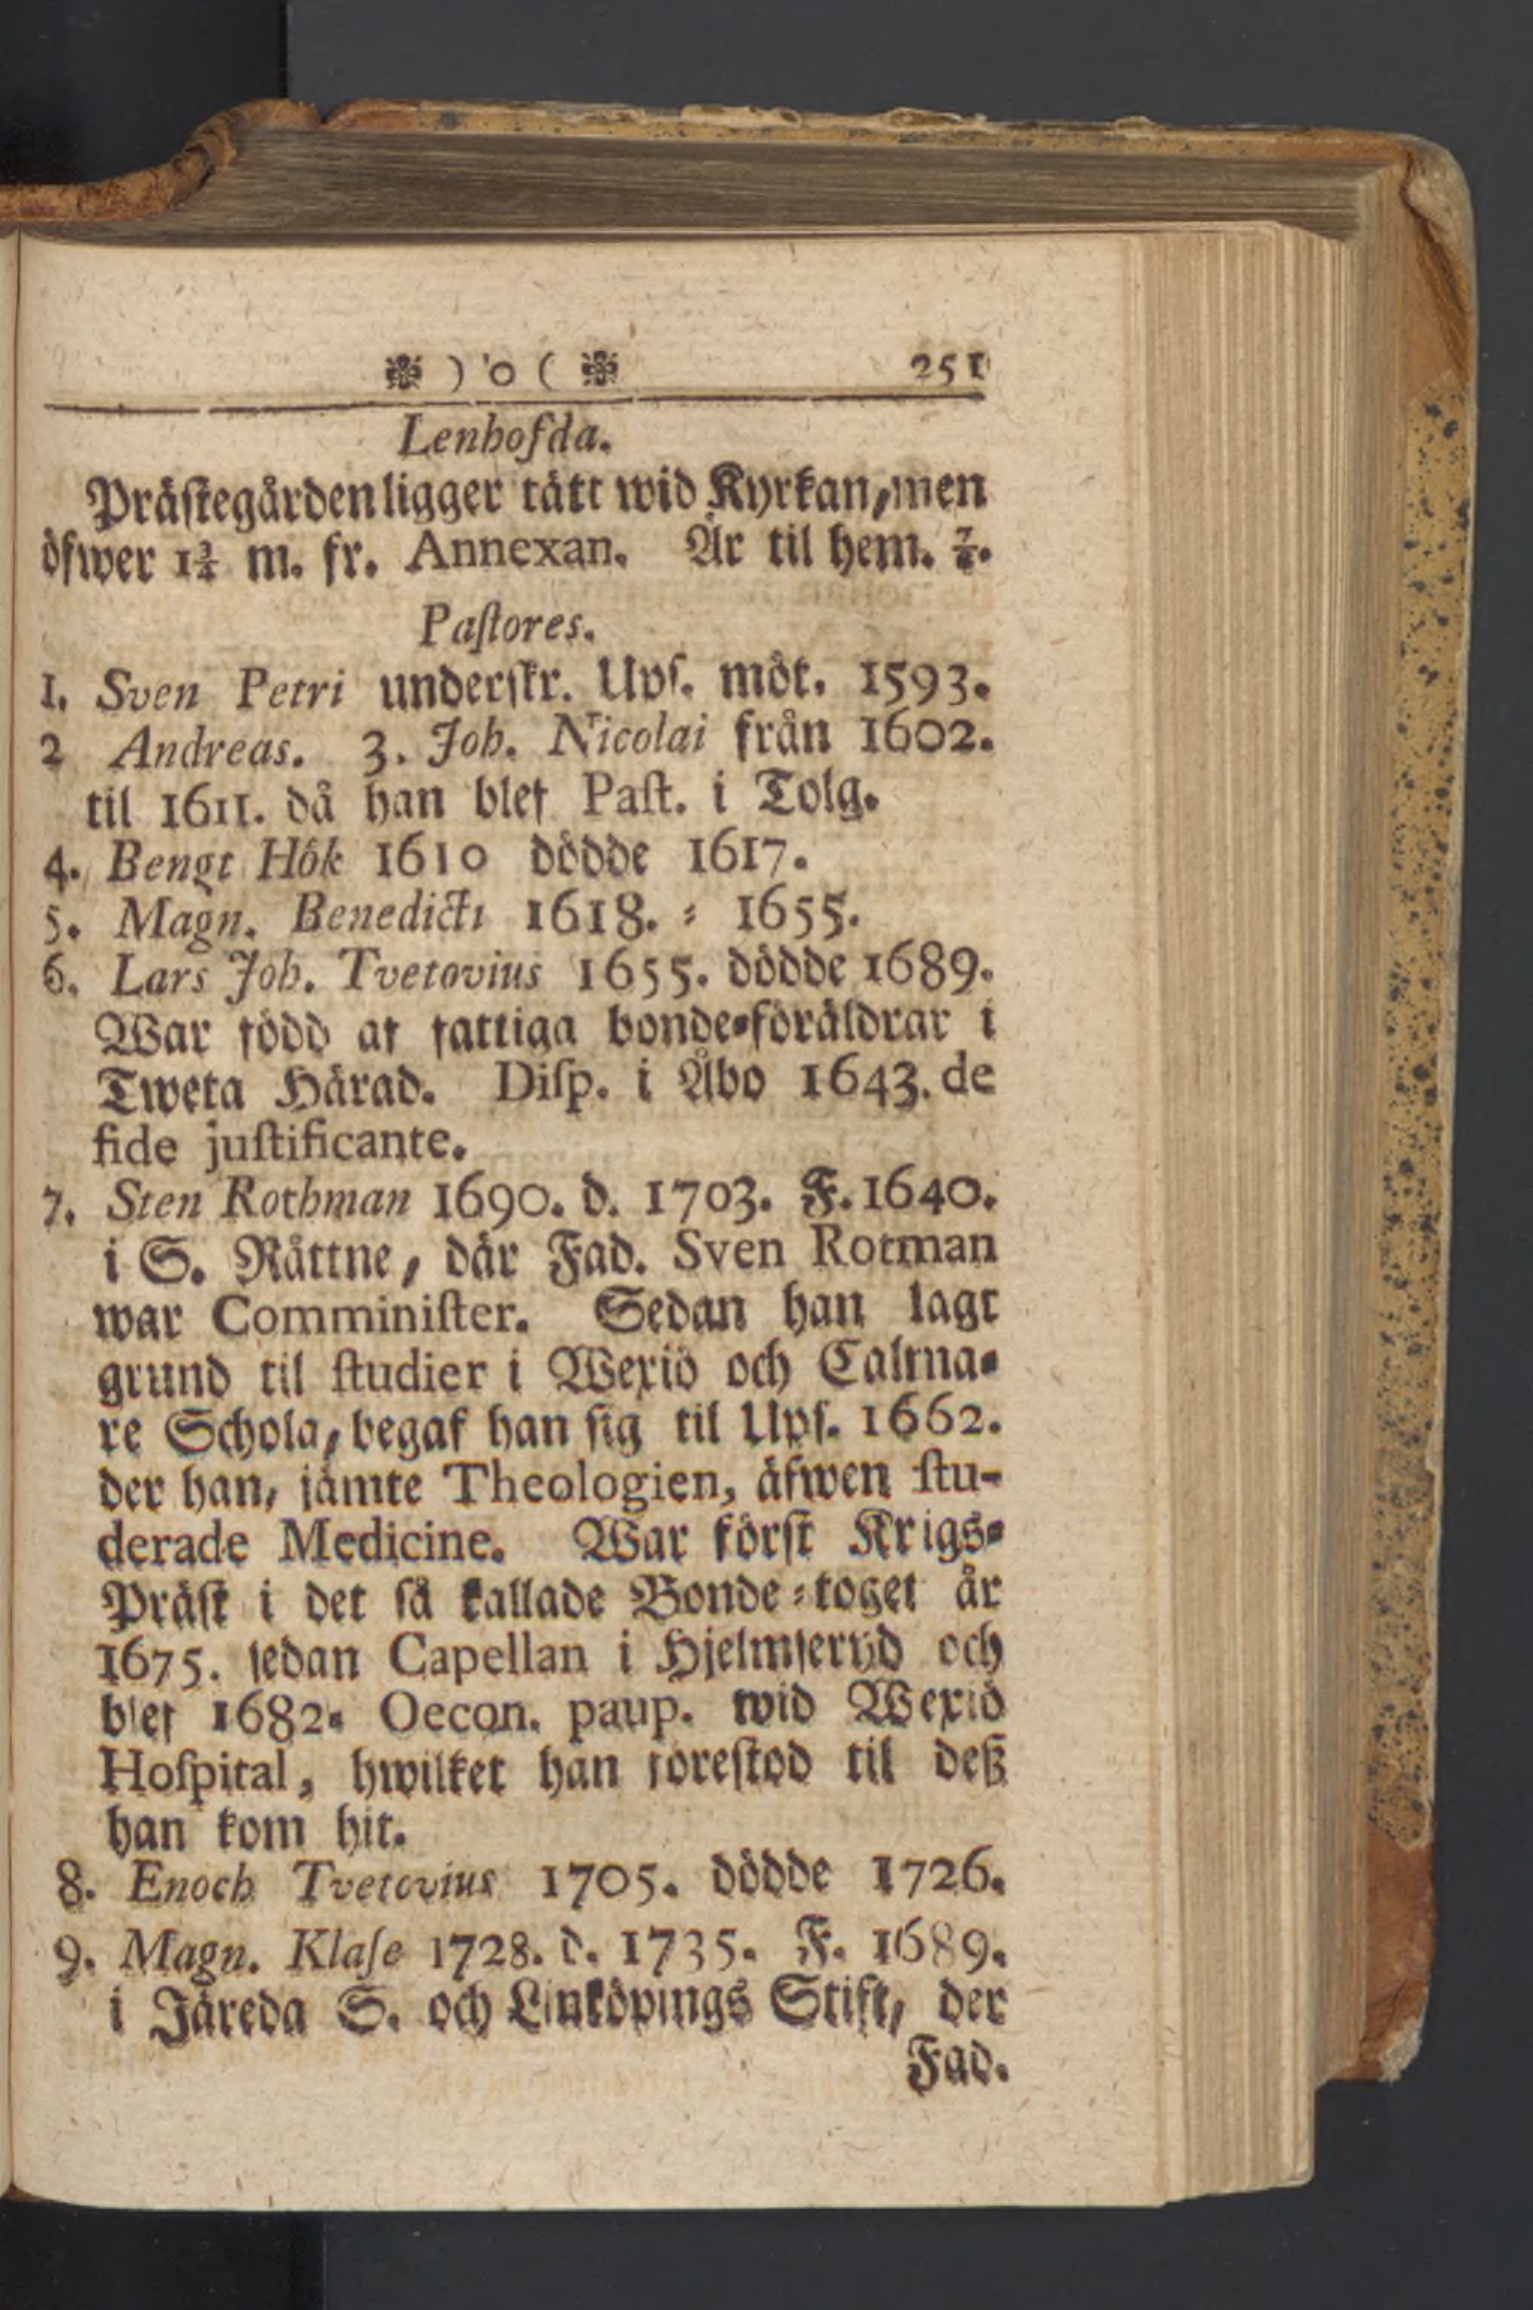 ❉ ) o ( ❉ 251
Lenhofda.
Prästegården ligger tätt wid Kyrkan, men
öfwer 1¾ m. fr. Annexan. Är til hem. ⅞.
Pastores.
1. Sven Petri underskr. Ups. möt. 1593.
2 Andreas. 3. Joh. Nicolai från 1602.
til 1611. då han blef Past. i Tolg.
4. Bengt Hök 1610 dödde 1617.
5. Magn. Benedicti 1618. - 1655.
6. Lars Joh. Tvetovius 1655. dödde 1689.
War född af fattiga bonde-föräldrar i
Tweta Härad. Disp. i Åbo 1643. de
fide justificante.
7. Sten Rothman 1690. d. 1703. F. 1640.
i S. Råttne, där Fad. Sven Rotman
war Comminister. Sedan han lagt
grund til studier i Wexiö och Calma-
re Schola, begaf han sig til Ups. 1662.
der han, jämte Theologien, äfwen stu-
derade Medicine. War först Krigs-
Präst i det så kallade Bonde-toget år
1675. sedan Capellan i Hjelmseryd och
blef 1682. Oecon. paup. wid Wexiö
Hospital, hwilket han förestod til deß
han kom hit.
8. Enoch Tvetovius 1705. dödde 1726.
9. Magn. Klase 1728. d. 1735. F. 1689.
i Järeda S. och Linköpings Stift, der
Fad.